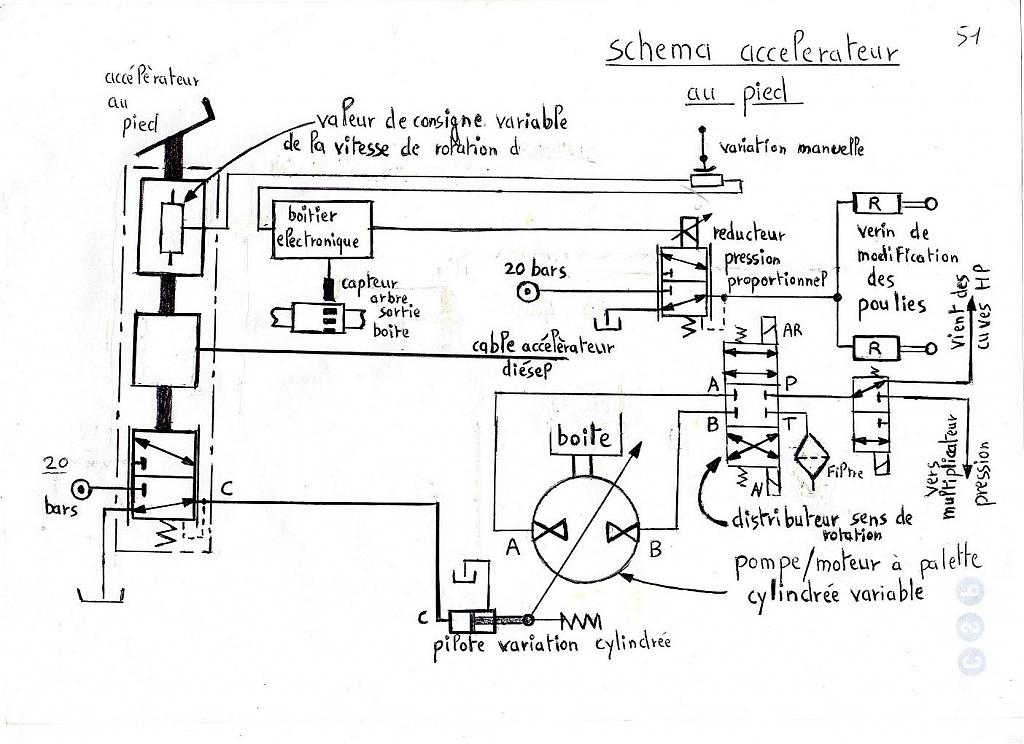 51
schema accelerateur
au pied
accélèrateur
au
pied
valeur de consigne variable
de la vitesse de rotation d
variation manuelle
boitier
electronique
capteur
arbre
sortie
boite
20 bars
reducteur
pression
proportionnel
R
verin de
modification
des
poulies
R
vient des
cuves HP
cable accélèrateur
diésel
AR
A
P
B
T
AV
Filtre
vers
multiplicateur
pression
boite
distributeur sens de
rotation
20
bars
C
A
B
pompe/moteur à palette
cylindrée variable
C
pilote variation cylindrée